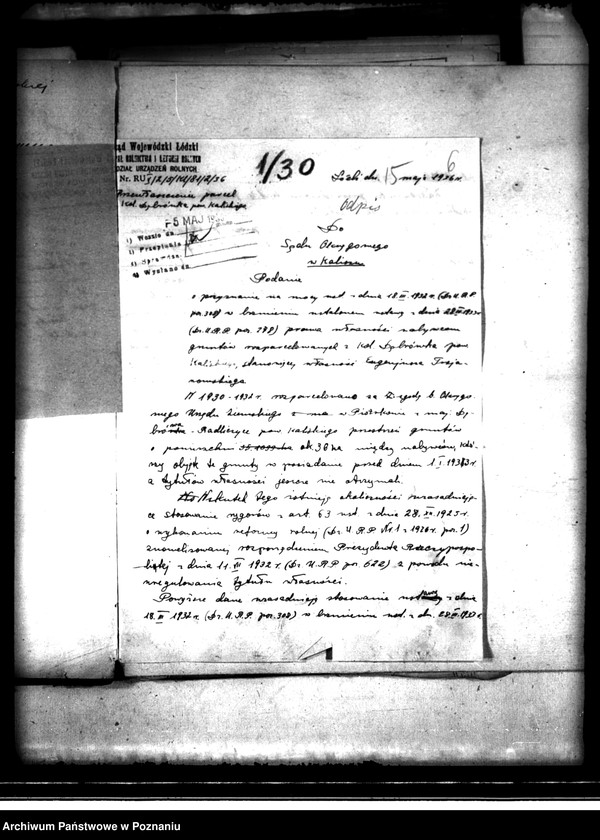 ąd Wojewódzki Łódzki
DZIAŁ URZĄDZEŃ ROLNYCH
Nr. RU
1/30
6
Łódź dn. 15 maja 1936 r.
Przewłaszczenie parcel
kol. Dąbrówka pow. Kaliskiego
odpis
5 MAJ
1) Wpłynęło dn.
2) Przepisano
3) Sprawdzono
4) Wysłano dn.
Do
Sądu Okręgowego
w Kaliszu
Podanie
o przyznanie na mocy ust. z dnia 18 III 1932 r. (Dz.U.R.P.
poz. 308) w brzmieniu ustalonem ustawą z dnia 28 III 1933 r.
(Dz.U.R.P. poz. 298) prawa własności nabywcom
gruntów rozparcelowanych z kol. Dąbrówka pow.
Kaliskiego, stanowiącej własność Eugenjusza Troja-
nowskiego
W 1930-1932 r. rozparcelowano za zgodą b. Okręgo-
wego Urzędu Ziemskiego w Piotrkowie z maj. Dą-
brówka - Radliczyce pow. Kaliskiego przestrzeń gruntów
o powierzchni ok. 38 ha między nabywców, któ-
rzy objęli te grunty w posiadanie przed dniem 1 I 1933 r.
a tytułów własności jeszcze nie otrzymali.
Wskutek tego istnieją okoliczności uzasadniają-
ce stosowanie rygorów z art. 63 ust. z dnia 28 XII 1925 r.
o wykonaniu reformy rolnej (Dz.U.R.P. Nr. 1 z 1926 r. poz. 1)
znowelizowanej rozporządzeniem Prezydenta Rzeczypospo-
litej z dnia 11 VII 1932 r. (Dz.U.R.P. poz. 622) z powodu nie-
uregulowania tytułu własności.
Powyższe dane uzasadniają stosowanie ustawy z dnia
18 III 1932 r. (Dz.U.R.P. poz. 308) w brzmieniu ust. z dn. 28 III 1933 r.
Archiwum Państwowe w Poznaniu